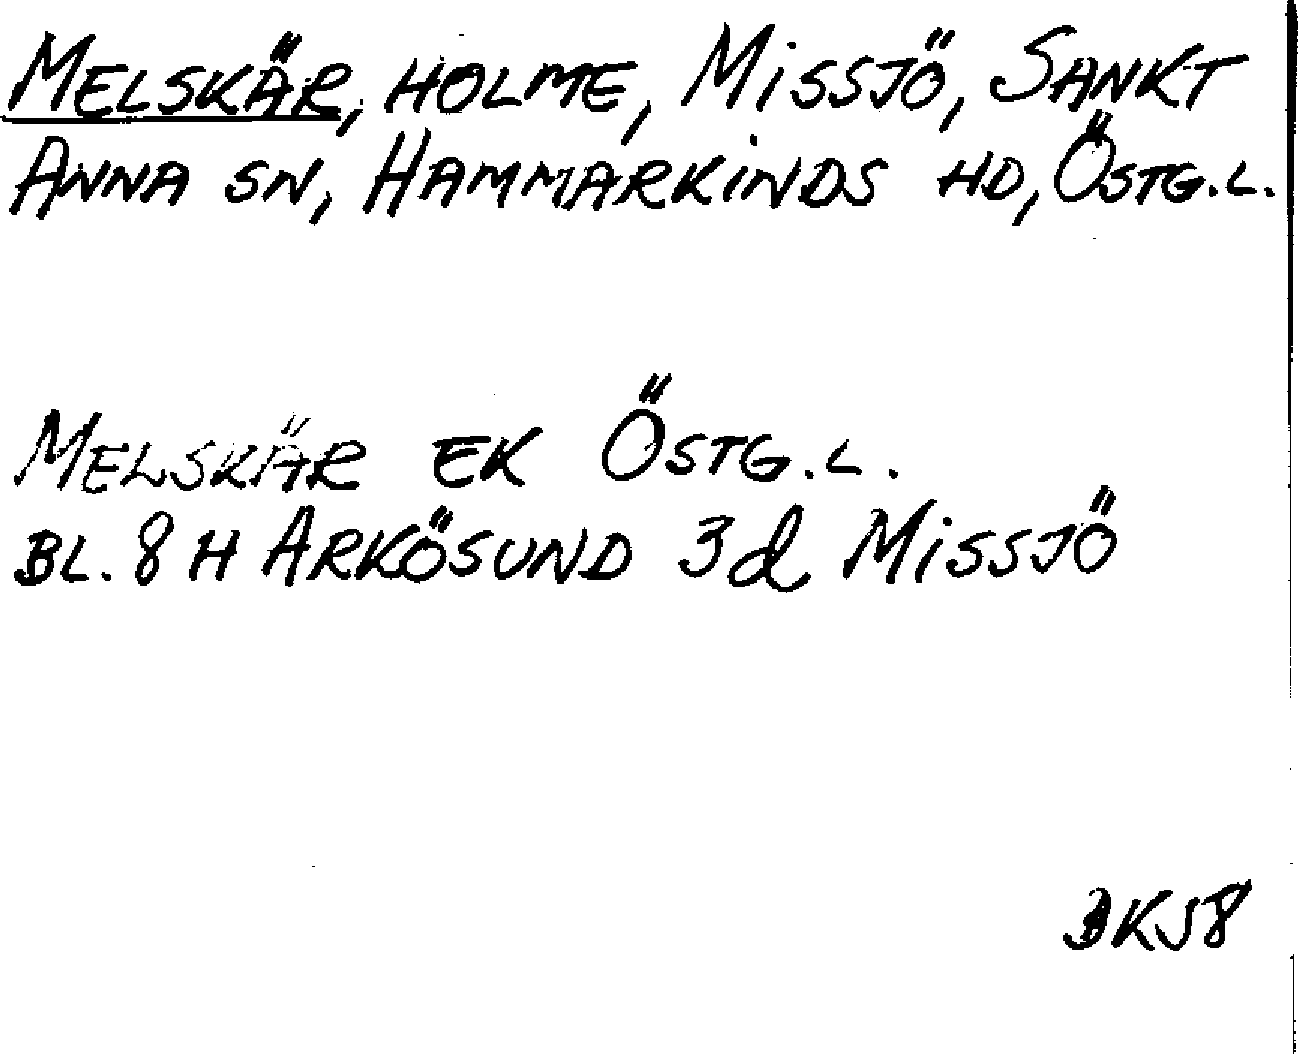 MELSKÄR, HOLME, MISSJÖ, SANKT
ANNA SN, HAMMARKINDS HD, ÖSTG.L.
MELSKÄR EK ÖSTG.L.
BL. 8 H ARKÖSUND 3d MISSJÖ